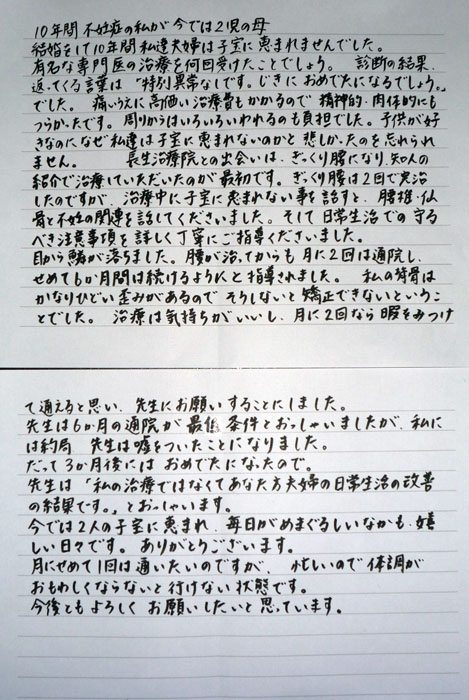 10年間 不妊症の私が今では2児の母
結婚をして10年間私達夫婦は子宝に恵まれませんでした。
有名な専門医の治療を何回受けたことでしょう。 診断の結果、
返ってくる言葉は "特別異常なしです。じきに おめでたになるでしょう。"
でした。 痛いうえに高価い治療費もかかるので 精神的・肉体的にも
つらかったです。周りからはいろいろいわれるのも負担でした。子供が好
きなのに なぜ私達は子宝に恵まれないのかと 悲しかったのを忘れられ
ません。 長生治療院との出会いは、ぎっくり腰になり、知人の
紹介で治療していただいたのが最初です。ぎっくり腰は2回で完治
したのですが、治療中に子宝に恵まれない事を話すと、腰椎・仙
骨と不妊の関連を話してくださいました。そして日常生活での守る
べき注意事項を詳しく丁寧にご指導くださいました。
目から鱗が落ちました。腰が治ってからも月に2回は通院し、
せめて6か月間は続けるようにと指導されました。 私の背骨は
かなりひどい歪みがあるので そうしないと矯正できないというこ
とでした。 治療は気持ちがいいし、月に2回なら暇をみつけ
て通えると思い、先生にお願いすることにしました。
先生は6か月の通院が最低条件とおっしゃいましたが、私に
は約局 先生は嘘をついたことになりました。
だって3か月後には おめでたになったので。
先生は「私の治療ではなくてあなた方夫婦の日常生活の改善
の結果です。」とおっしゃいます。
今では2人の子宝に恵まれ、毎日がめまぐるしいなかも・嬉
しい日々です。ありがとうございます。
月にせめて1回は通いたいのですが、 忙しいので体調が
おもわしくならないと行けない状態です。
今後ともよろしく お願いしたいと思っています。